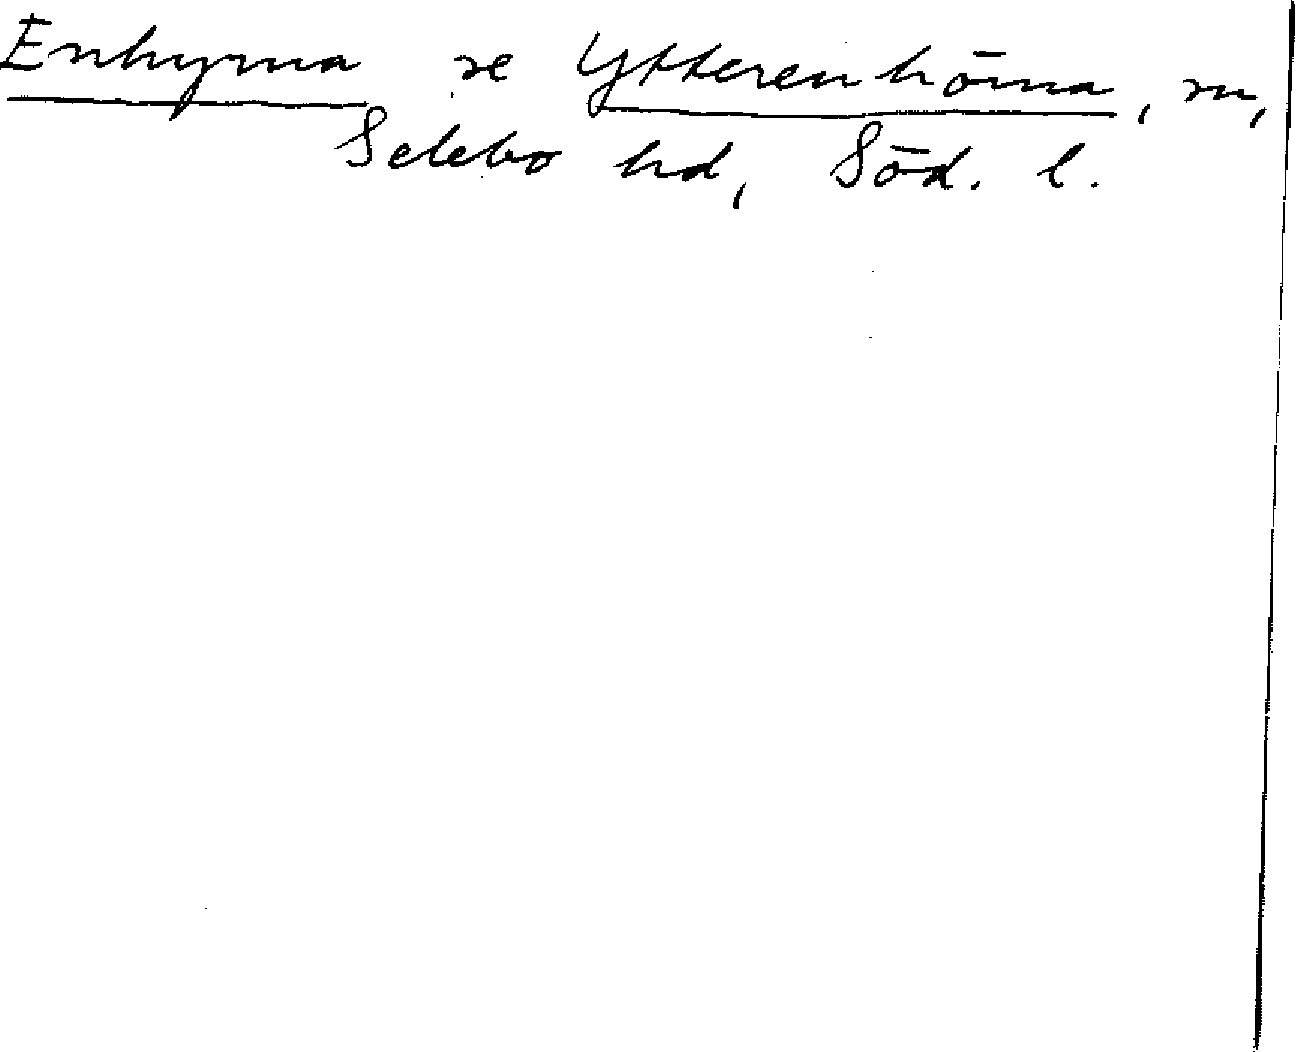 Enhyrna se Ytterenhörna, sn,
Selebo hd, Söd. l.